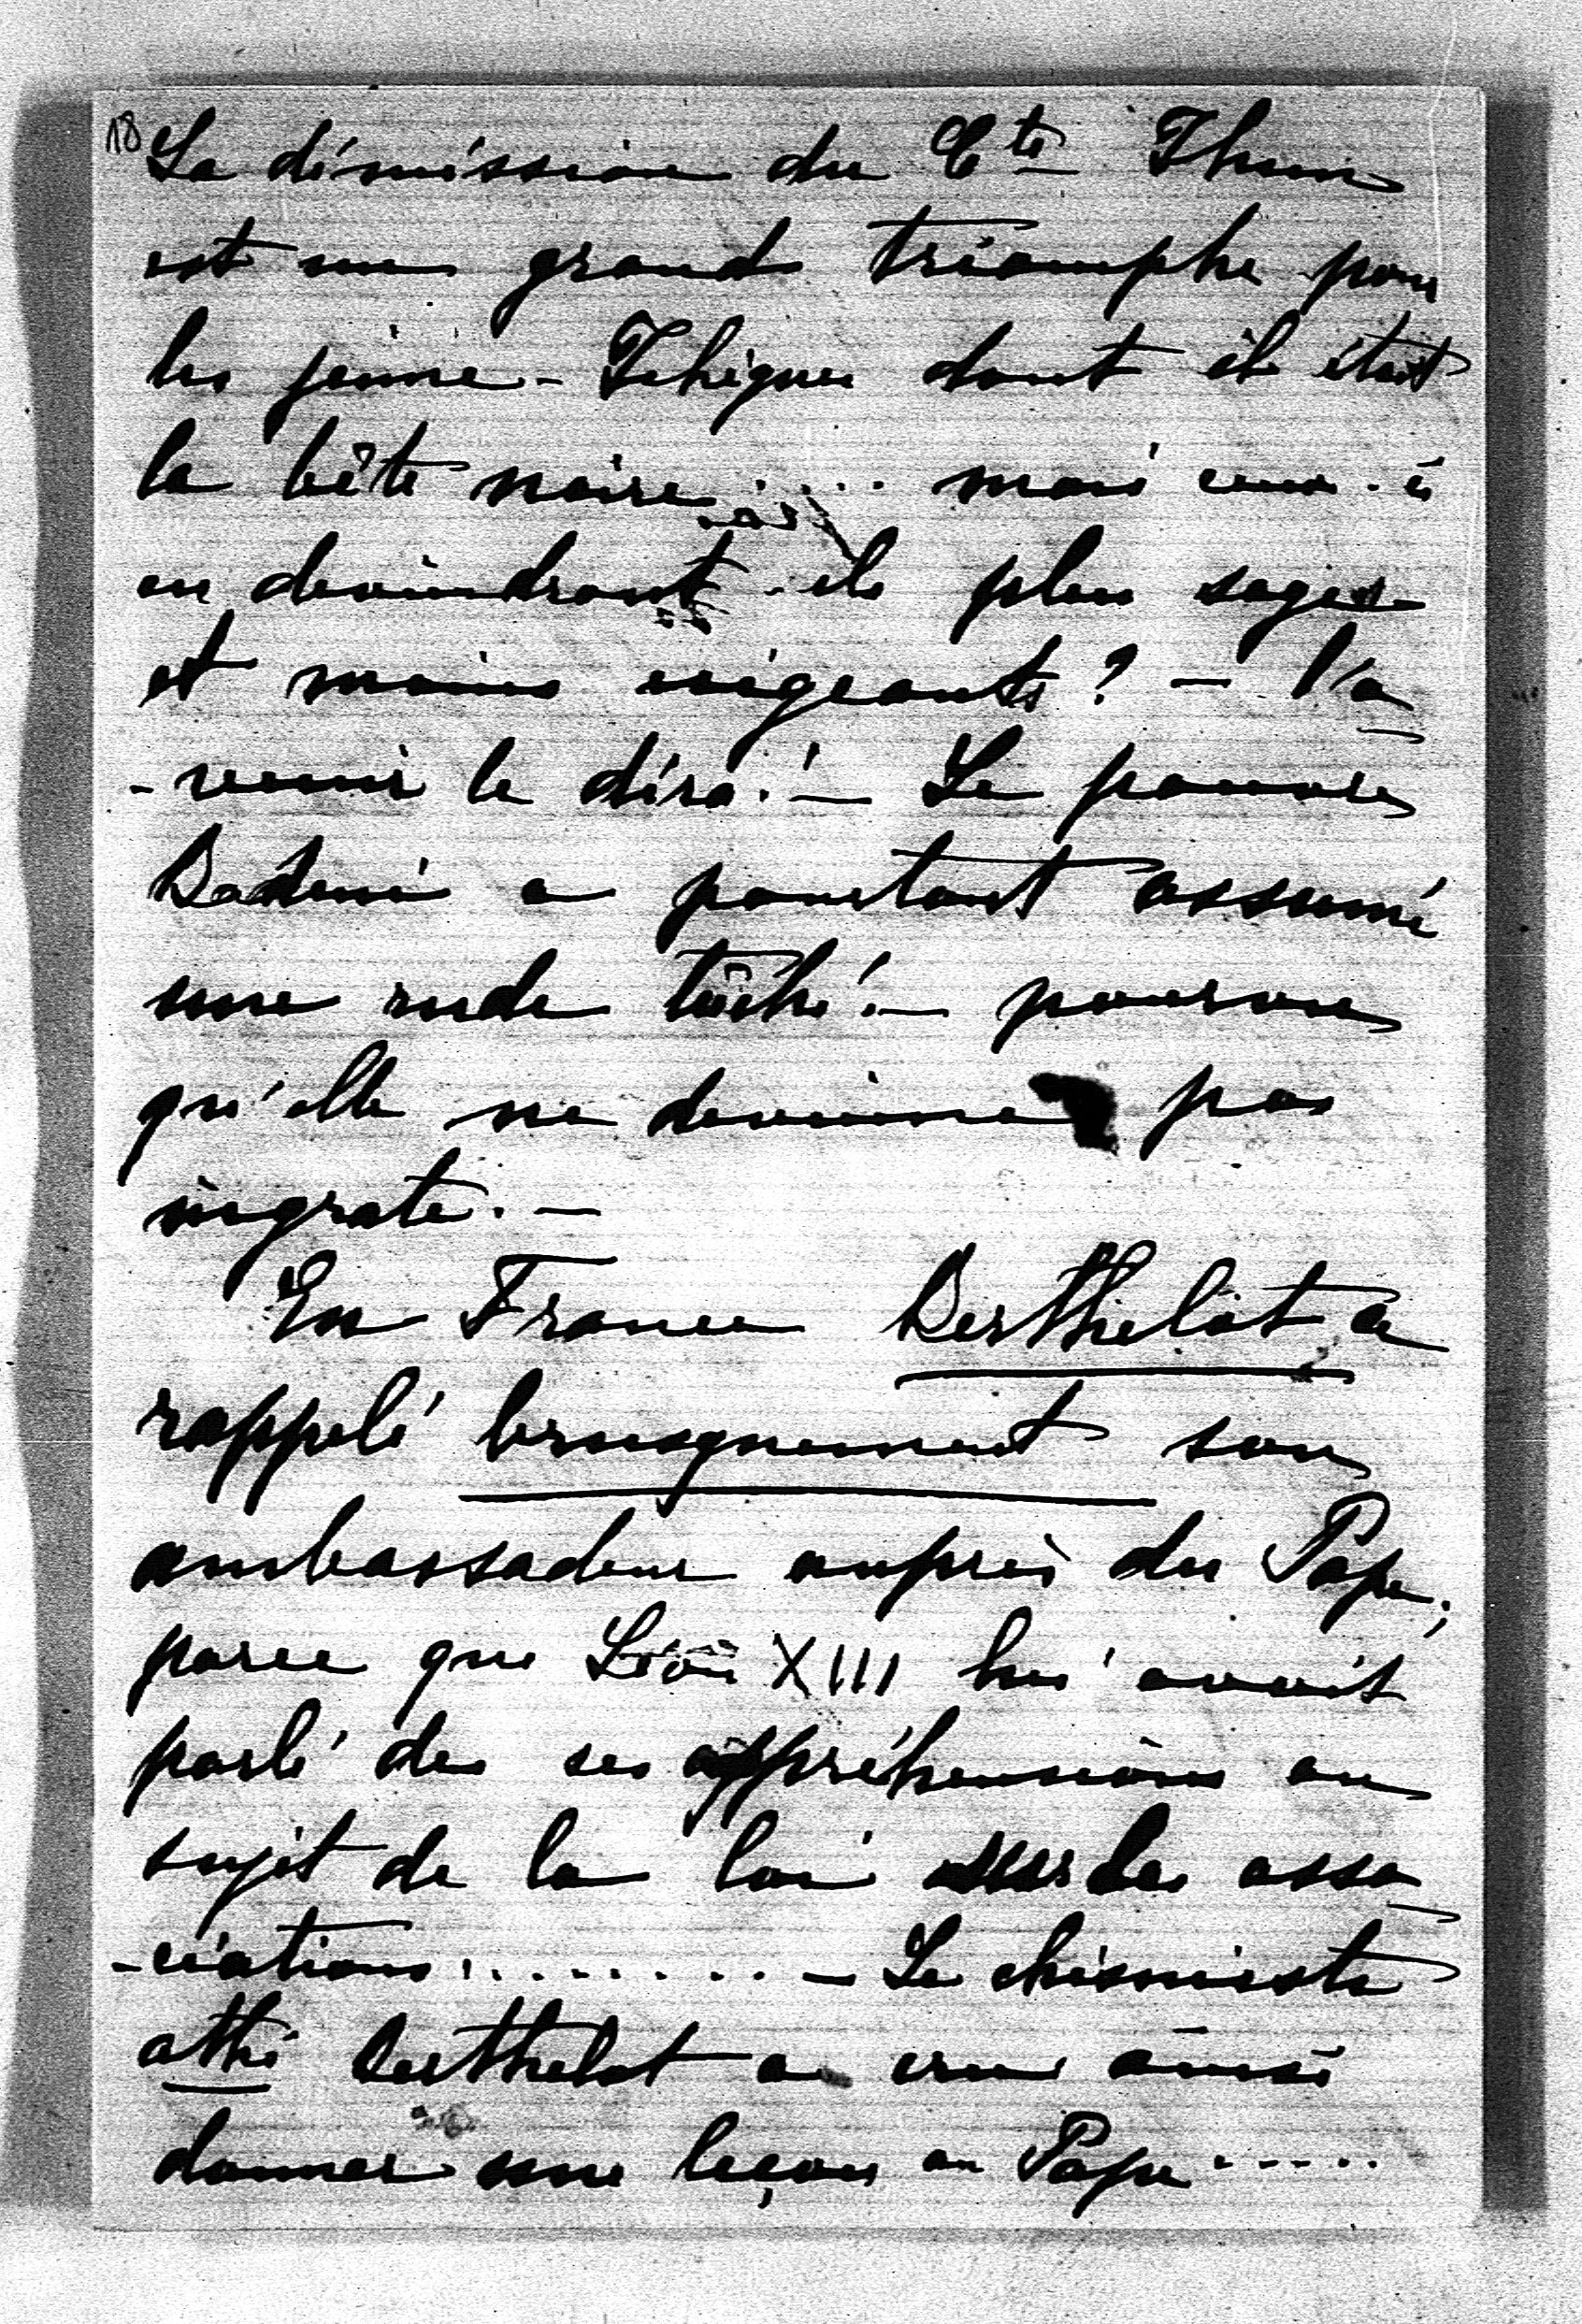 18 La démission du Cte Thun
est un grand triomphe pour
les jeune-Tchèques dont il était
la bête noire..... mais ceux-ci
en deviendront-ils plus sages
et moins exigeants? - l'a
-venir le dira! - Le pauvre
Badeni a pourtant assumé
une rude tâche! - pourvu
qu'elle ne devienne pas
ingrate. -
En France Berthelot a
rappelé brusquement son
ambassadeur auprès du Pape,
parce que Léon XIII lui avait
parlé de ses appréhensions au
sujet de la loi sur les asso
-ciations......... - Le chimiste
athé Berthelot a cru ainsi
donner une leçon au Pape.....